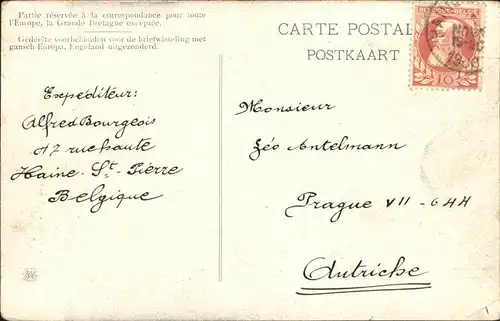 Partie réservée à la correspondance pour toute
l'Europe, la Grande Bretagne exceptée.
Gedeelte voorbehouden voor de briefwisseling met
gansch Europa, Engeland uitgezonderd.
CARTE POSTALE
POSTKAART
10
Expéditeur:
Alfred Bourgeois
47 rue haute
Haine-St-Pierre
Belgique
Monsieur
Léo Antelmann
Prague VII-644
Autriche